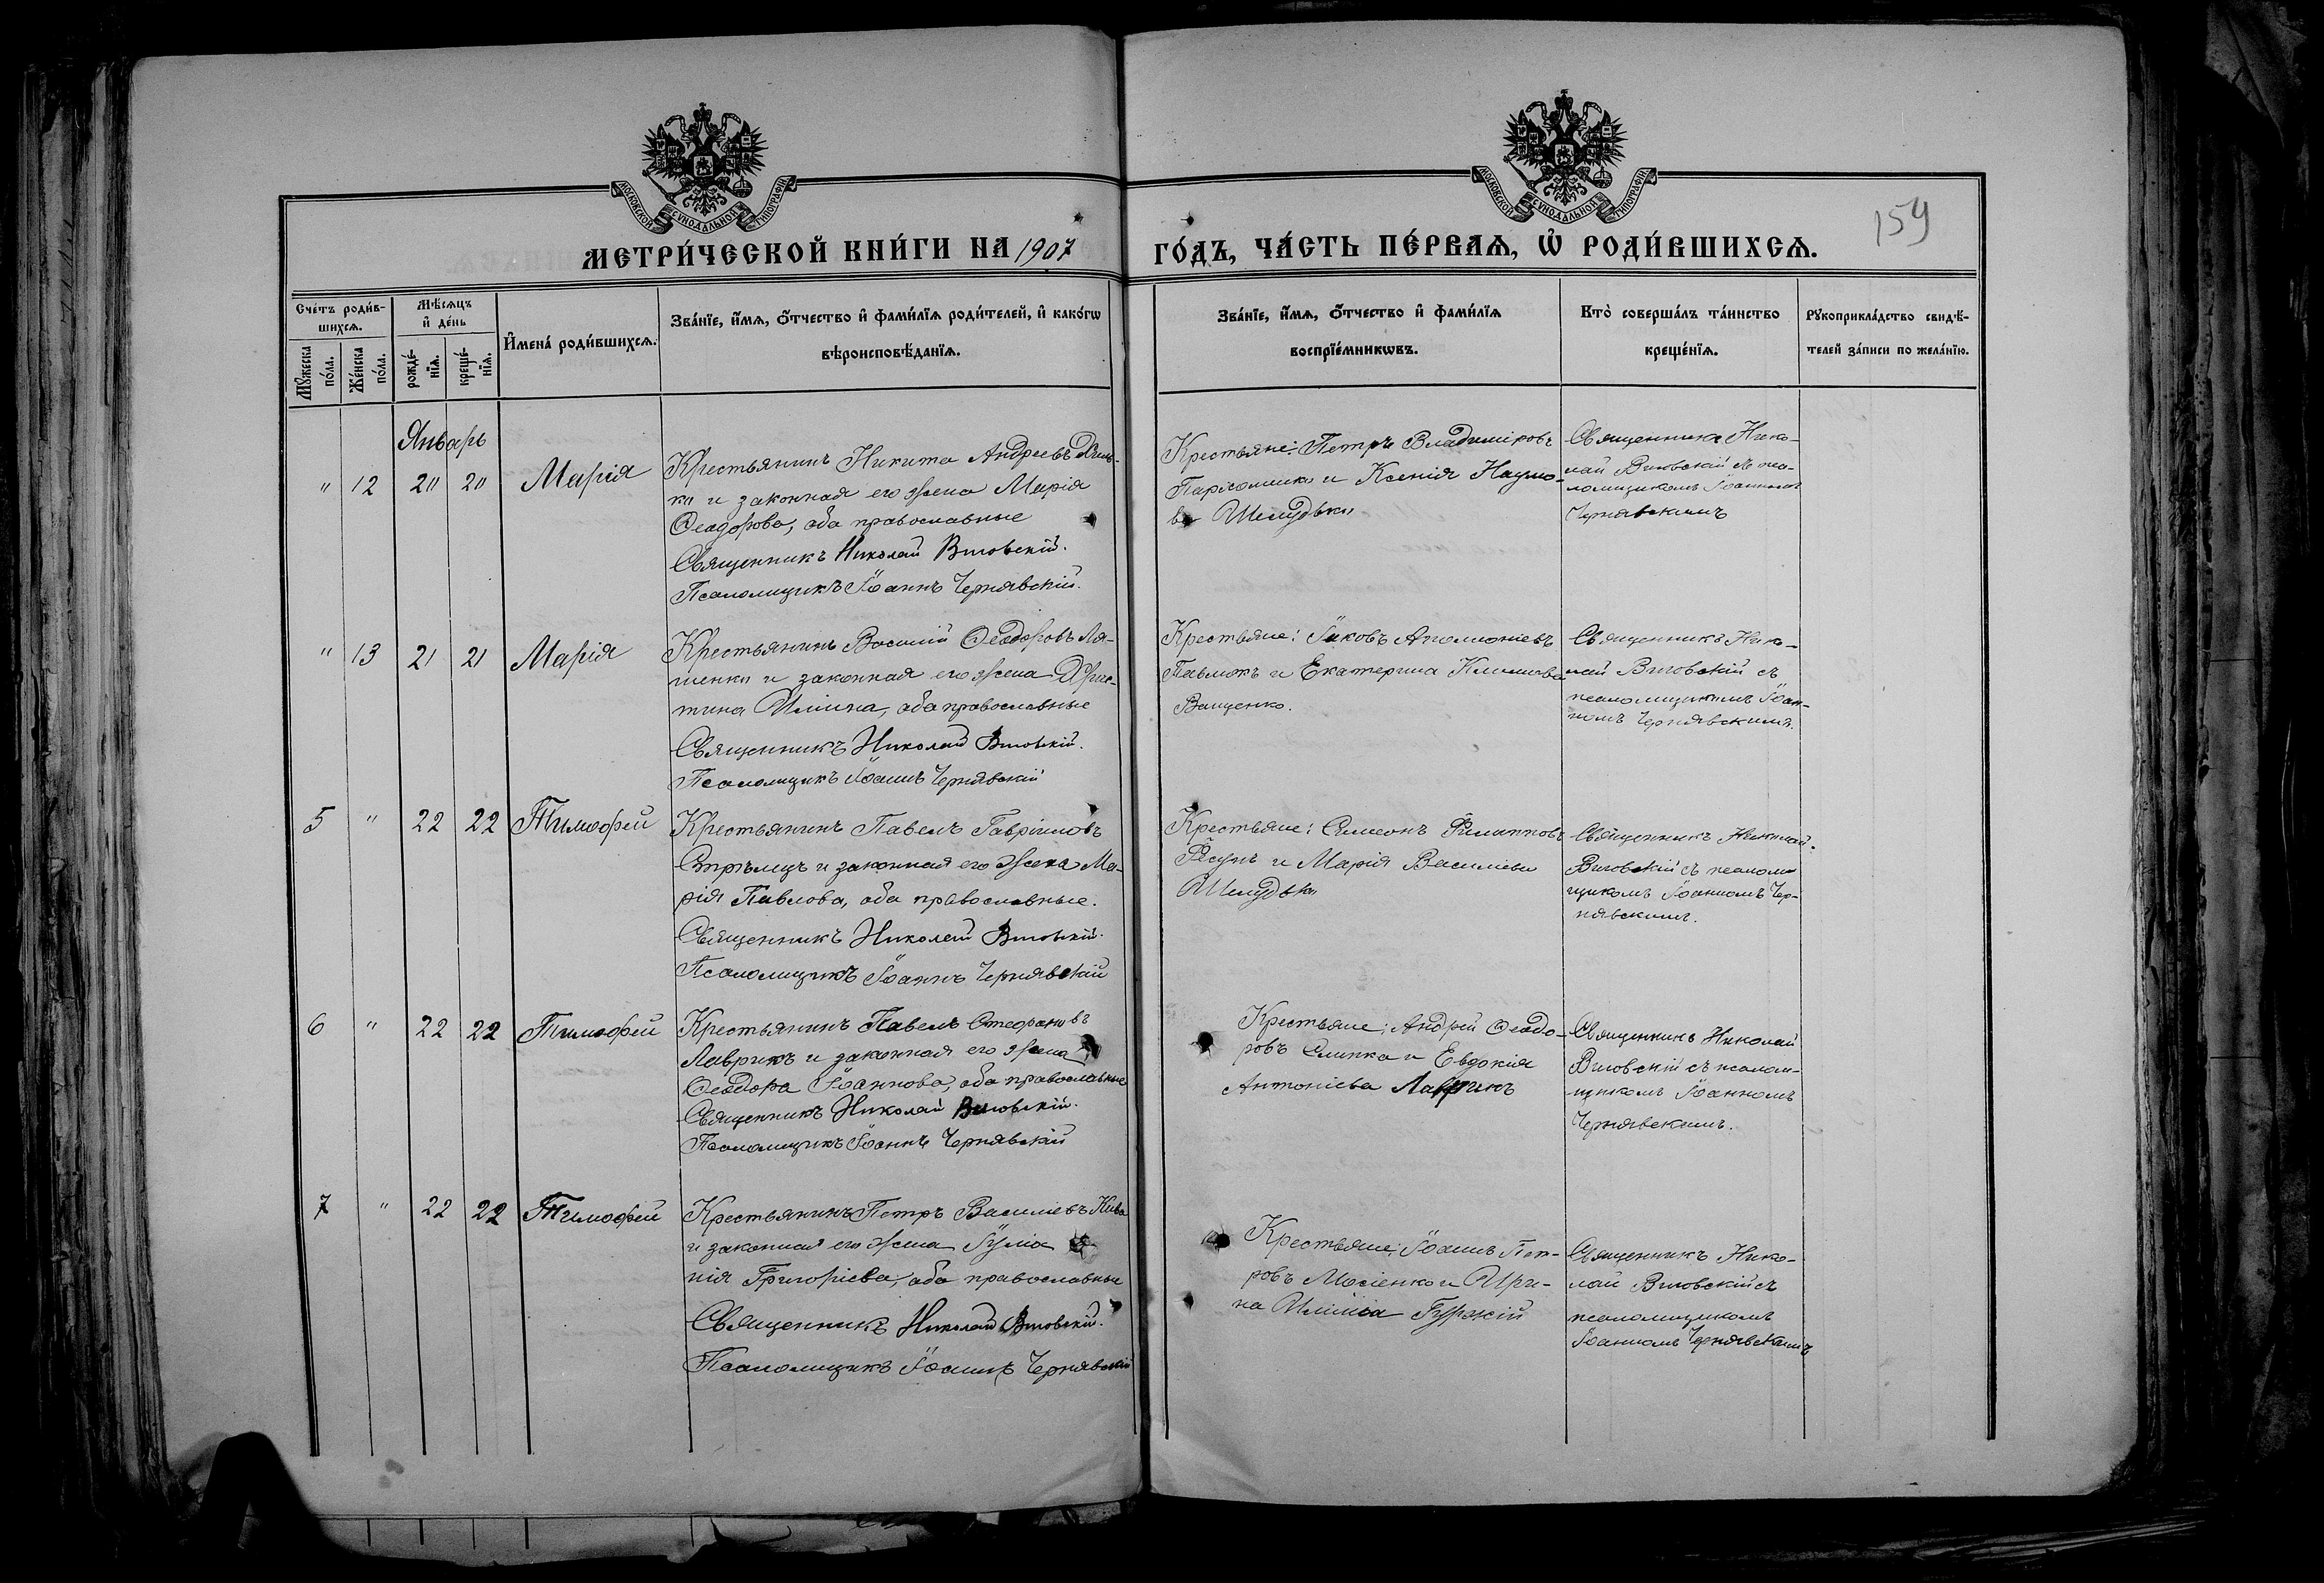 МОСКОВСКОЙ СѴНОДАЛЬНОЙ ТИПОГРАФІИ
МОСКОВСКОЙ СѴНОДАЛЬНОЙ ТИПОГРАФІИ
159
МЕТРИ́ЧЕСКОЙ КНИ́ГИ НА 1907
ГО́ДЪ, ЧА́СТЬ ПЕ́РВАѦ, Ѡ҆ РОДИ́ВШИХСѦ.
Сче́тъ роди́в-
шихсѧ.
Мꙋ́жеска по́ла.
Же́нска по́ла.
Мѣ́сѧцъ
и҆ де́нь
рожде́-
нїѧ.
креще́-
нїѧ.
И҆мена̀ роди́вшихсѧ.
Зва́нїе, и҆́мѧ, ѻ҆́тчество и҆ фами́лїѧ роди́телей, и҆ како́гѡ
вѣроисповѣ́данїѧ.
Зва́нїе, и҆́мѧ, ѻ҆́тчество и҆ фами́лїѧ
воспрїе́мникѡвъ.
Кто̀ соверша́лъ та́инство
креще́нїѧ.
Рꙋкоприкла́дство свидѣ́-
телей за́писи по жела́нїю.
Январь
" 12 20 20 Марія
Крестьянинъ Никита Андреевъ
и законная его жена Марія
Ѳеодорова, оба православные
Священникъ Николай Виговскій.
Псаломщикъ Іоаннъ Чернявскій.
Крестьяне: Петръ Владиміровъ
Пархоменко и Ксенія Наумо-
ва Шелудько
Священникъ Нико-
лай Виговскій съ пса-
ломщикомъ Іоанномъ
Чернявскимъ
" 13 21 21 Марія
Крестьянинъ Василій Ѳеодоровъ Ля-
шенко и законная его жена Хрис-
тина Иліина, оба православные
Священникъ Николай Виговскій.
Псаломщикъ Іоаннъ Чернявскій
Крестьяне: Іаковъ Аполлоніевъ
Павлюкъ и Екатерина Климова
Ващенко.
Священникъ Нико-
лай Виговскій съ
псаломщикомъ Іоан-
номъ Чернявскимъ.
5 " 22 22 Тимофей
Крестьянинъ Павелъ Гавріиловъ
Стрѣлецъ и законная его жена Ма-
рія Павлова, оба православные.
Священникъ Николай Виговскій.
Псаломщикъ Іоаннъ Чернявскій
Крестьяне: Симеонъ Филипповъ
и Марія Василіева
Шелудько
Священникъ Николай
Виговскій съ псалом
щикомъ Іоанномъ Чер-
нявскимъ.
6 " 22 22 Тимофей
Крестьянинъ Павелъ Стефановъ
Лаврикъ и законная его жена
Ѳеодора Іоаннова, оба православные
Священникъ Николай Виговскій.
Псаломщикъ Іоаннъ Чернявскій
Крестьяне: Андрей Ѳеодо-
ровъ Слипко и Евдокія
Антоніева Лаврикъ
Священникъ Николай
Виговскій съ псалом-
щикомъ Іоанномъ
Чернявскимъ.
7 " 22 22 Тимофей
Крестьянинъ Петръ Василіевъ Кива
и законная его жена Іуліа
нія Григоріева, оба православные
Священникъ Николай Виговскій.
Псаломщикъ Іоаннъ Чернявскій
Крестьяне: Іоаннъ Пет-
ровъ Мосіенко и Ири-
на Иліина Гуржій
Священникъ Нико-
лай Виговскій съ
псаломщикомъ
Іоанномъ Чернявскимъ